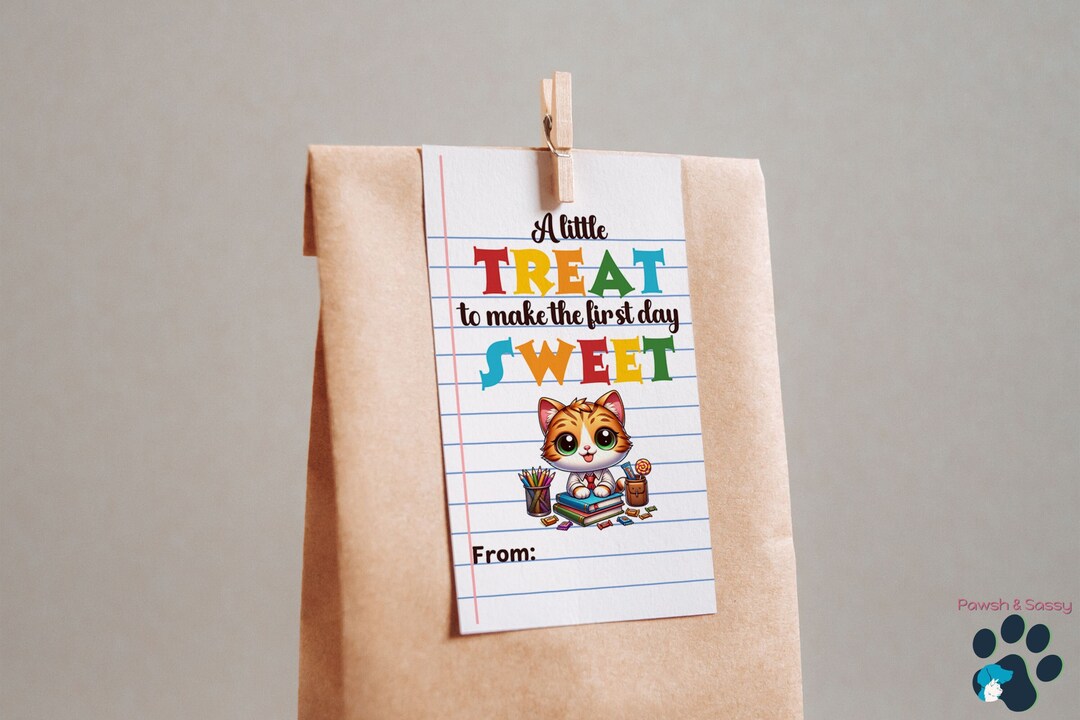 A little
TREAT
to make the first day
SWEET
From:
Pawsh & Sassy